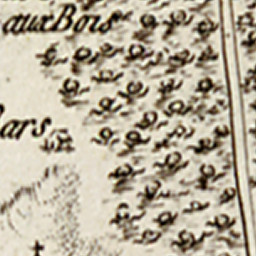 aux Bois
ars